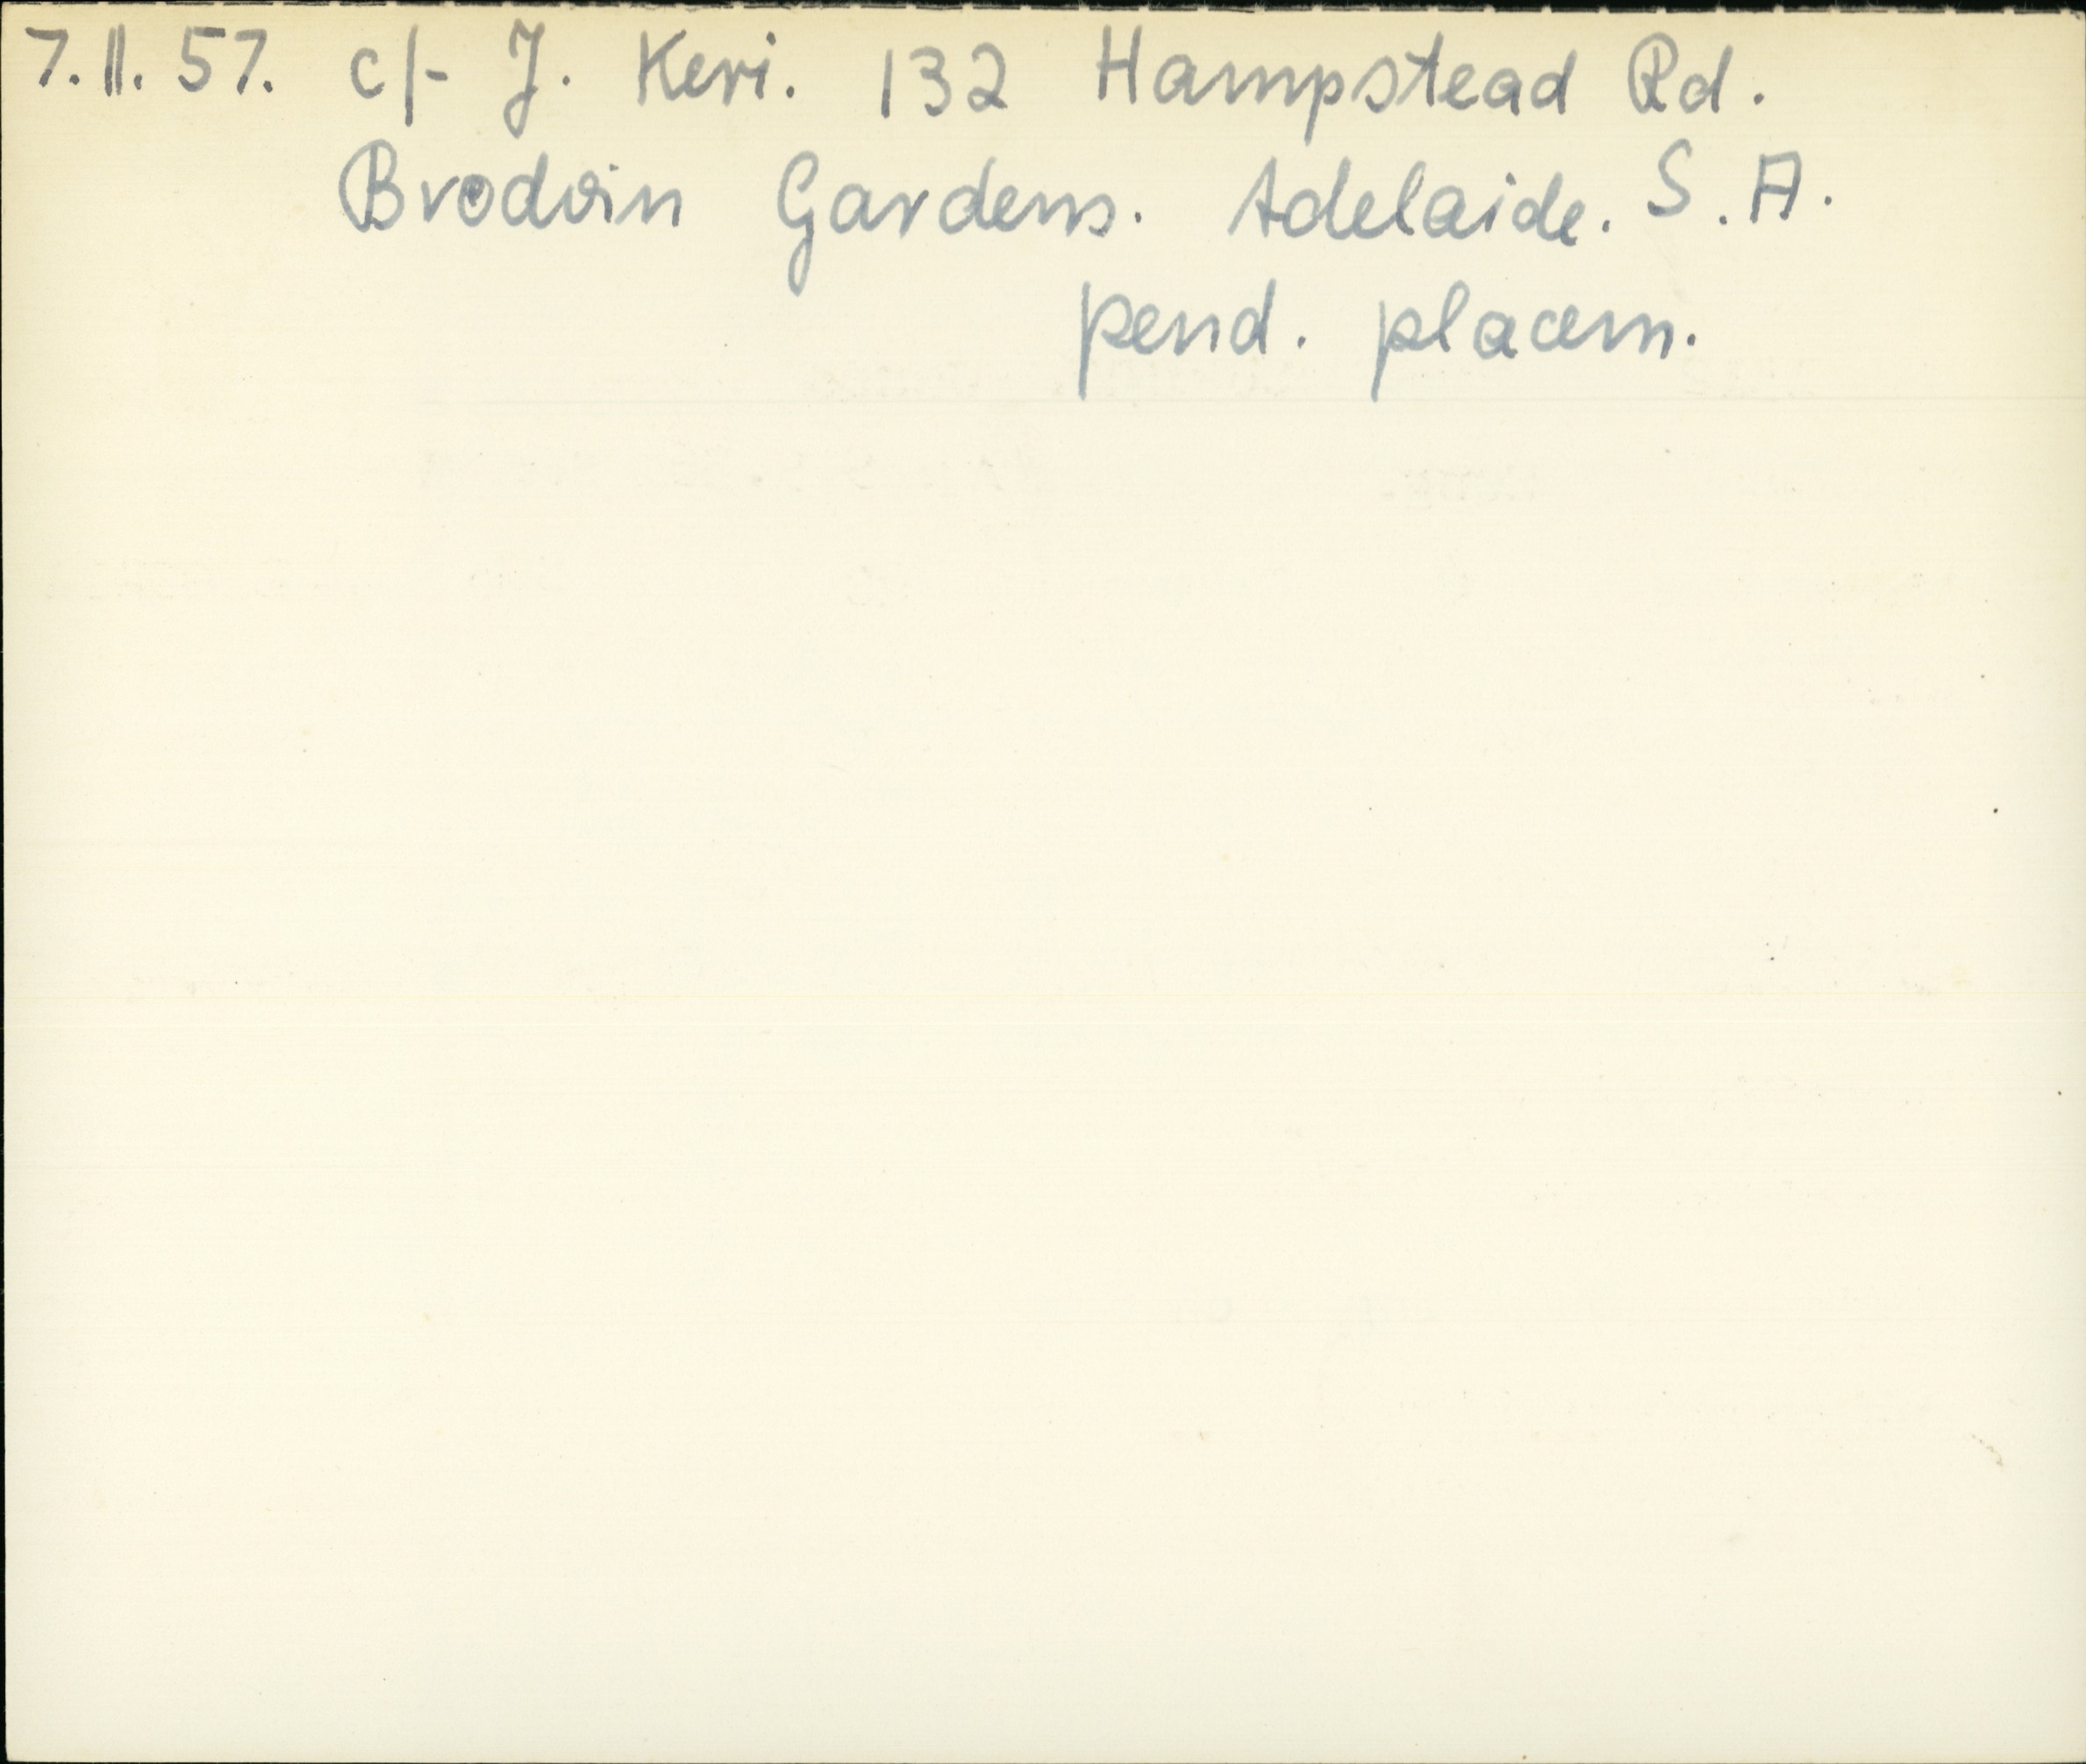 7.11.57. c/- J. Keri. 132 Hampstead Rd.
Brodvin Gardens. Adelaide. S.A.
pend. placem.